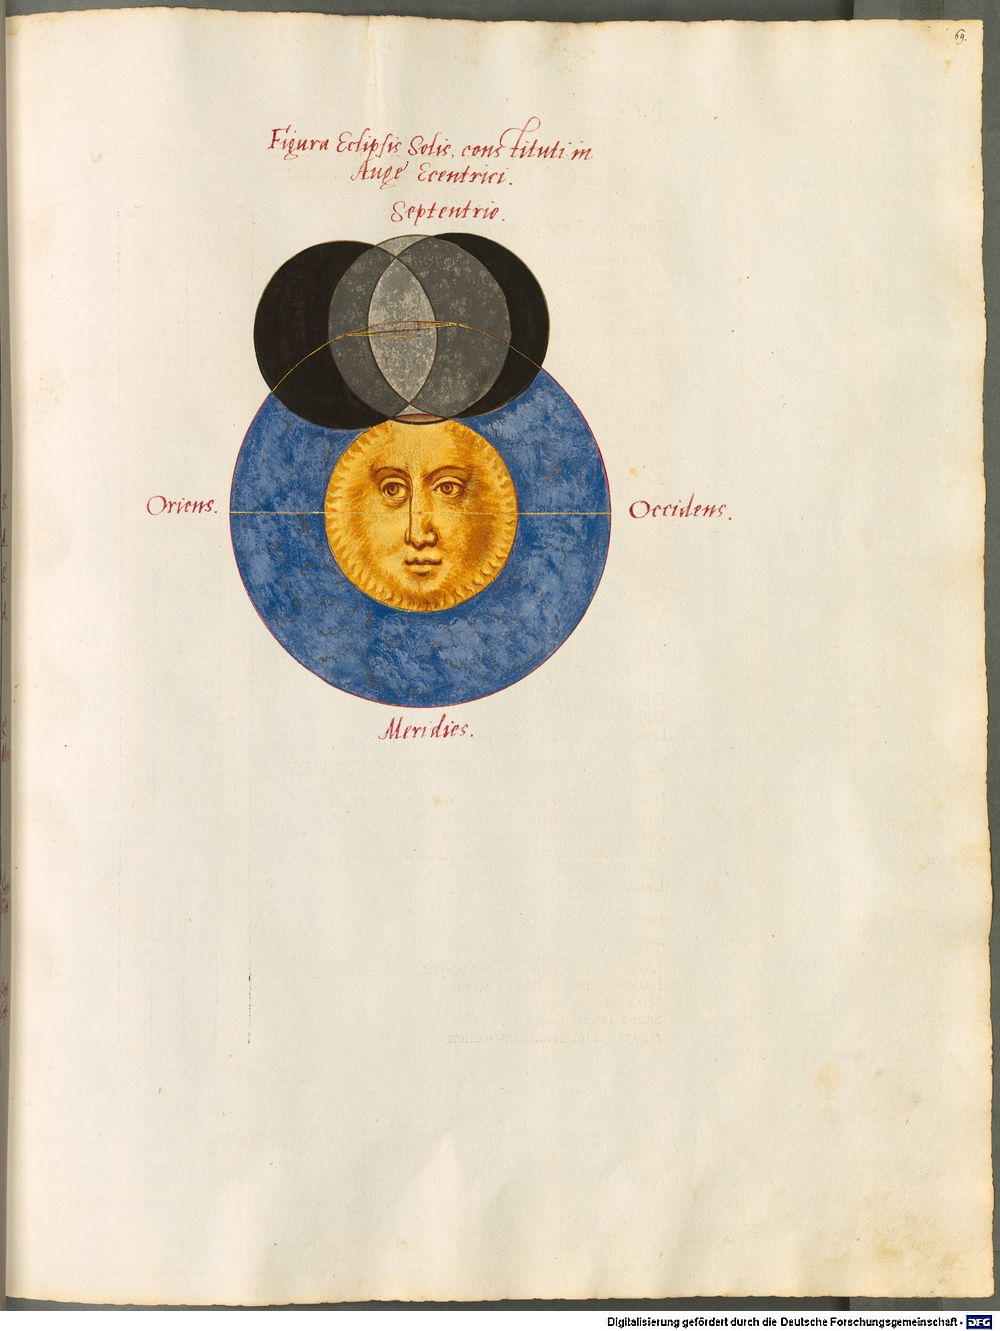 69.
Figura Eclipsis Solis, constituti in
Auge Ecentrici.
Septentrio.
Oriens.
Occidens.
Meridies.
Digitalisierung gefördert durch die Deutsche Forschungsgemeinschaft - DFG